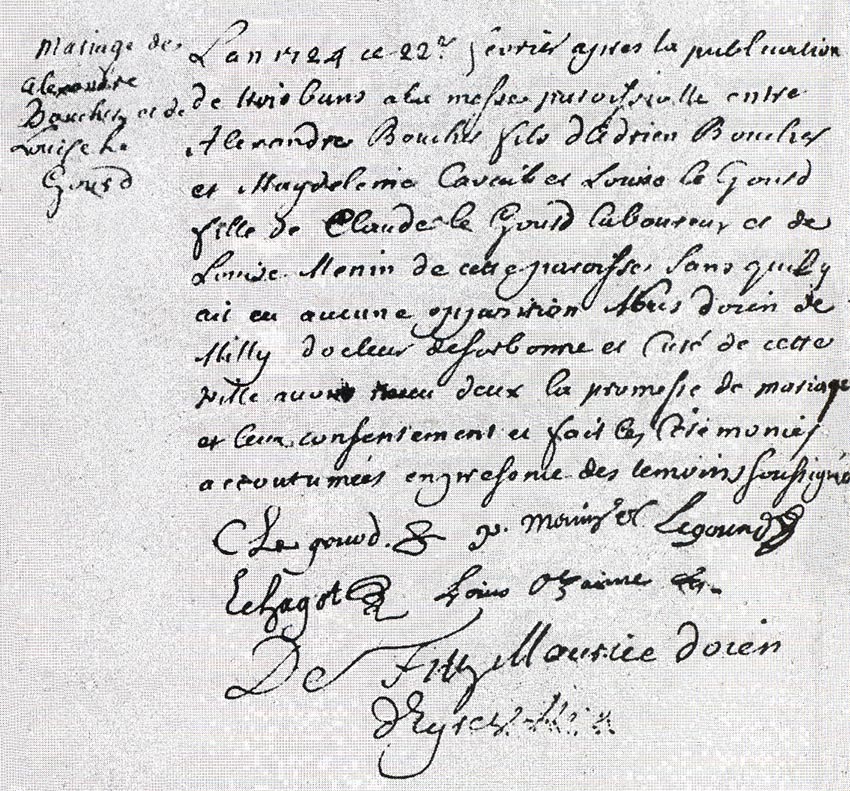 Mariage de
alexandre
Boucher et de
Louise le
Gourd
L an 1724 ce 22e février apres la publication
de trois bans a la messe paroissialle entre
Alexandre Boucher fils d'Adrien Boucher
et Magdeleine et Louise le Gourd
fille de Claude le Gourd laboureur et de
Louise Menin de cette paroisse sans quil y
ait eu aucune opposition Nous dorien de
Milly docteur de sorbonne et Curé de cette
ville avons receu deux la promesse de mariage
et leur consentement et fait les Cérémonies
accoutumées en presence des temoins soussignés
C Le gourd Legourd
Lehagot Louis
De Maurice dorien